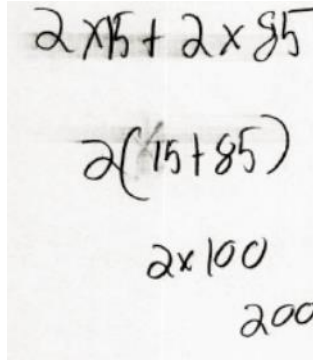 2×15 + 2×85
2(15+85)
2×100
200